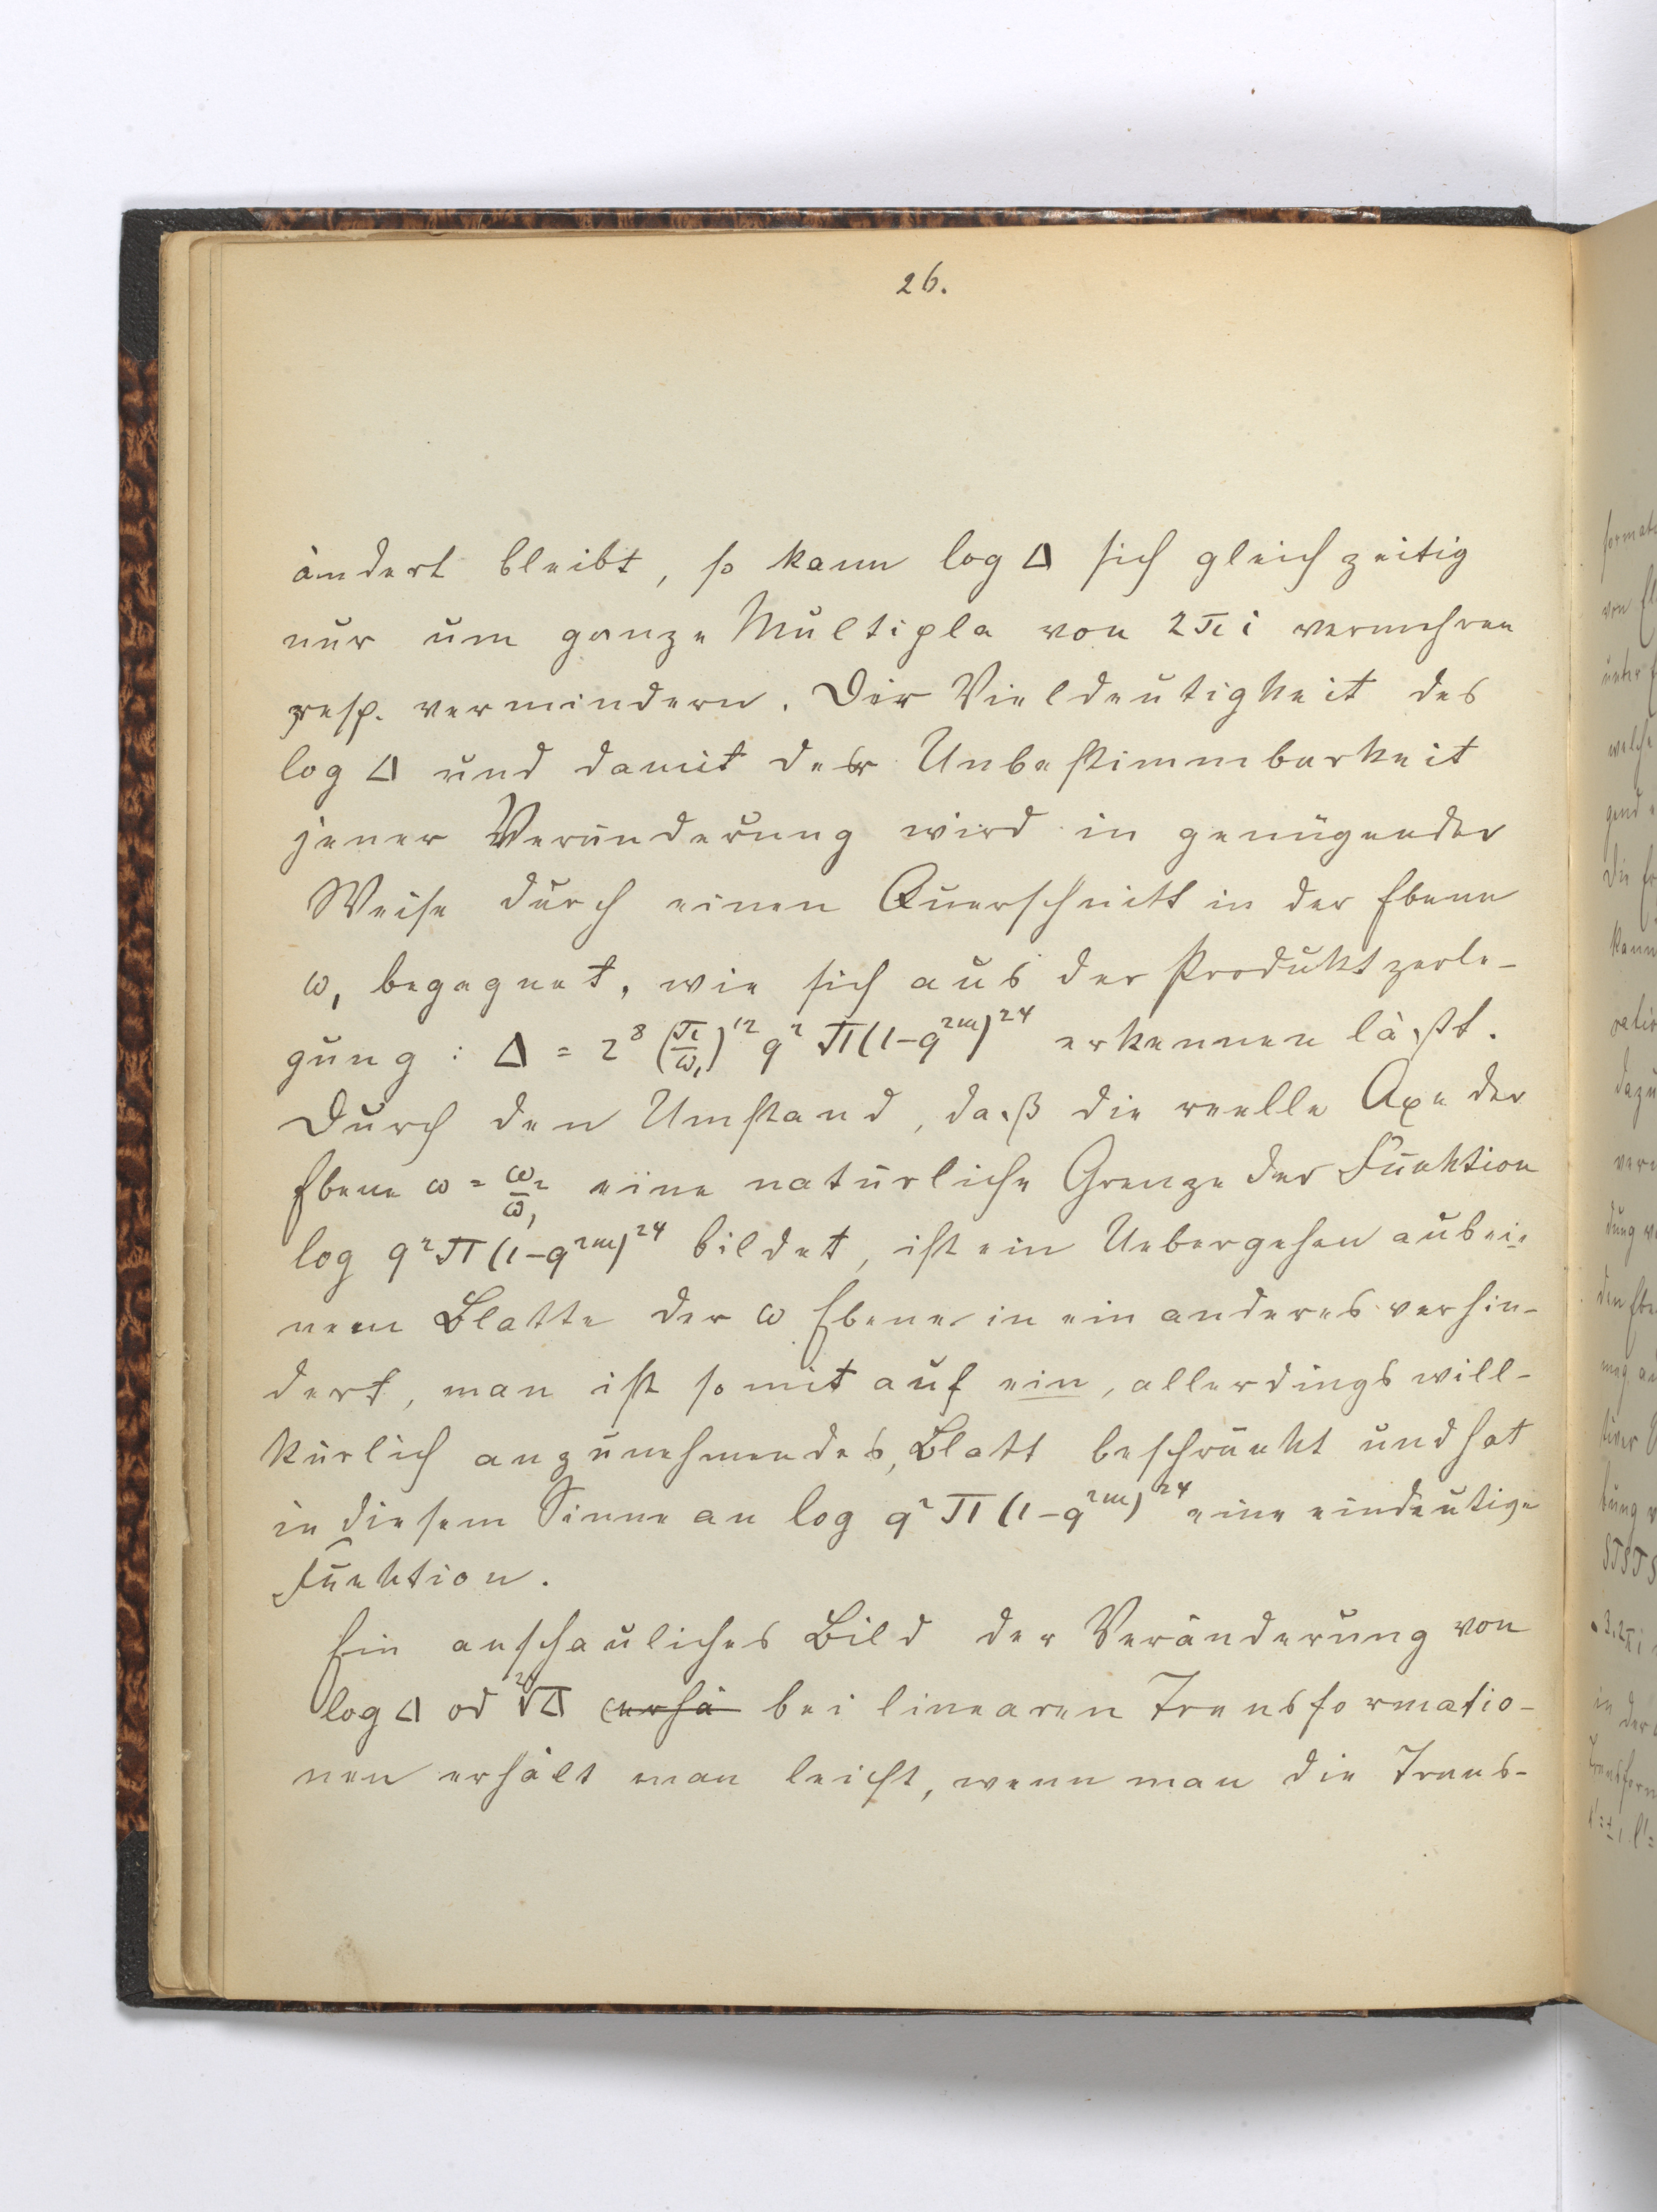 26.
ändert bleibt, so kann log Δ sich gleichzeitig
nur um ganze Multipla von 2πi vermehren
resp. vermindern. Die Vieldeutigkeit des
log Δ und damit der Unbestimmbarkeit
jener Veränderung wird in genügender
Weise durch einen Querschnitt in der Ebene
ω₁ begegnet, wie sich aus der Produktzerle-
gung: Δ = 2⁸ (π/ω₁)¹² q² Π(1-q²ᵐ)²⁴ erkennen läßt.
Durch den Umstand, daß die reelle Axe der
Ebene ω = ω₂/ω₁ eine natürliche Grenze der Funktion
log q² Π(1-q²ᵐ)²⁴ bildet, ist ein Uebergehen aus ei-
nem Blatte der ω Ebene in ein anderes verhin-
dert, man ist somit auf ein, allerdings will-
kürlich anzunehmendes, Blatt beschränkt und hat
in diesem Sinne an log q² Π(1-q²ᵐ)²⁴ eine eindeutige
Funktion.
Ein anschauliches Bild der Veränderung von
log Δ od ²⁴√Δ erhä bei linearen Transformatio-
nen erhält man leicht, wenn man die Trans-